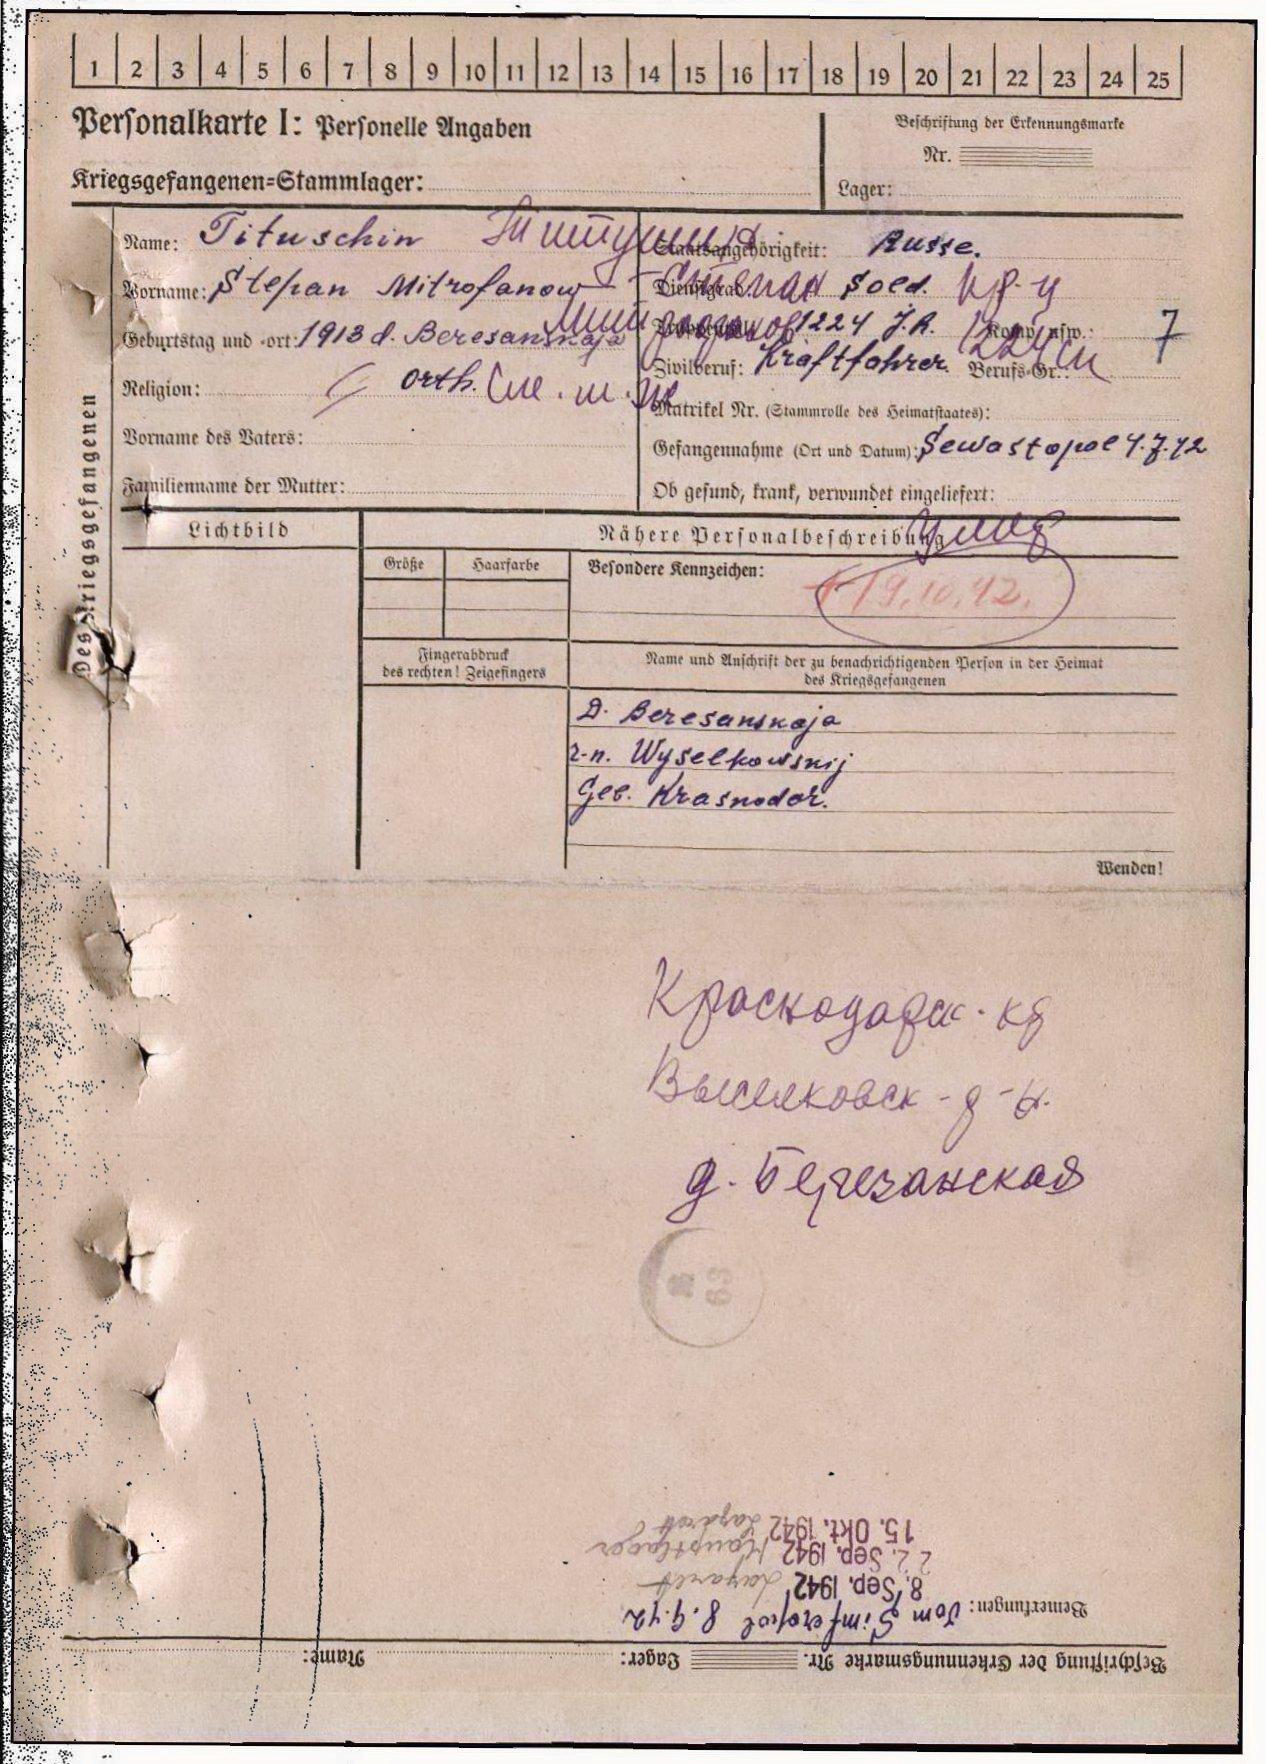 1 2 3 4 5 6 7 8 9 10 11 12 13 14 15 16 17 18 19 20 21 22 23 24 25
Personalkarte I: Personelle Angaben
Kriegsgefangenen=Stammlager:
Beschriftung der Erkennungsmarke
Nr.
Lager:
Des Kriegsgefangenen
Name: Tituschin Титушин
Vorname: Stepan Mitrofanow Степан
Митрофанов
Geburtstag und -ort: 1913 d. Beresanskaja
Religion: orth.
Vorname des Vaters:
Familienname der Mutter:
Staatsangehörigkeit: Russe.
Dienstgrad: Sold. кр-ц
Truppenteil: 1224 J.R. Komp. usw.: 7
1224 сп
Zivilberuf: Kraftfahrer. Berufs-Gr.:
Matrikel Nr. (Stammrolle des Heimatstaates):
Gefangennahme (Ort und Datum): Sewastopol 4.7.42
Ob gesund, krank, verwundet eingeliefert:
Lichtbild
Nähere Personalbeschreibung
Größe Haarfarbe Besondere Kennzeichen:
умер
19.10.42.
Fingerabdruck
des rechten! Zeigefingers
Name und Anschrift der zu benachrichtigenden Person in der Heimat
des Kriegsgefangenen
D. Beresanskaja
r-n. Wyselkowskij
Geb. Krasnodor.
Wenden!
Краснодарск. кр
Выселковск - р-н.
д. Березанская
63
Beschriftung der Erkennungsmarke Nr. Lager: Name:
Bemerkungen: Vom Simferopol 8.9.42
8. Sep. 1942 Lazarett
22. Sep. 1942 Hauptlager
15. Okt. 1942 Lazarett